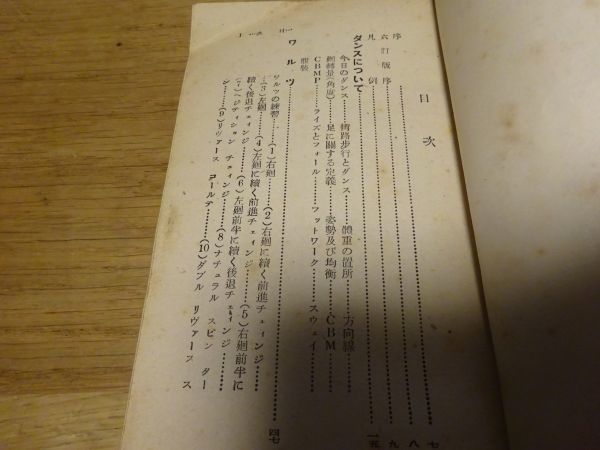 目次
序……七
六訂版序……八
凡例……九
ダンスについて……一五
今日のダンス……街路歩行とダンス……體重の置所……方向線……
廻轉量(角度)……足に關する定義……姿勢及び均衡……CBM……
CBMP……ライズとフォール……フットワーク……スウェイ……
服裝
ワルツ……四七
ワルツの練習……(1)右廻……(2)右廻に續く前進チェィンジ……
(3)左廻……(4)左廻に續く前進チェィンジ……(5)右廻前半に
續く後退チェィンジ……(6)左廻前半に續く後退チェィンジ……
(7)ヘジティション チェィンジ……(8)ナチュラル スピン ター
ン……(9)リヴァース コールテ……(10)ダブル リヴァース ス
目次 1